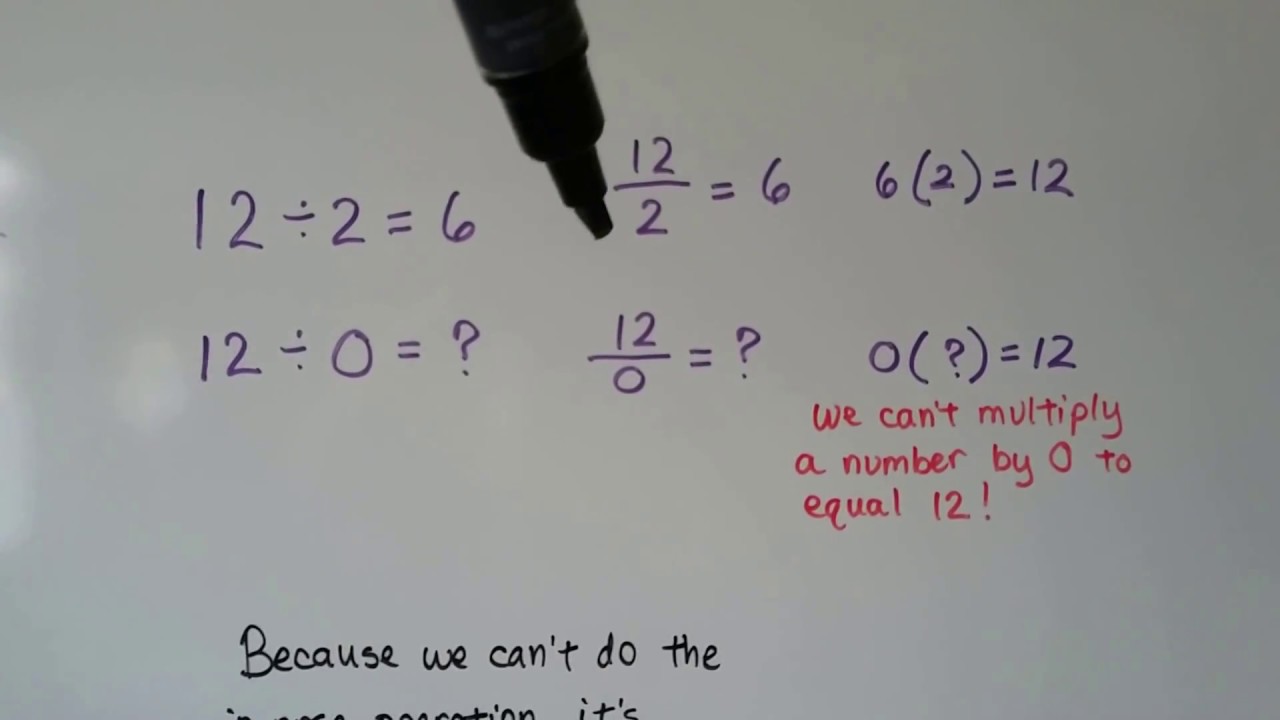 12 ÷ 2 = 6
12/2 = 6
6(2) = 12
12 ÷ 0 = ?
12/0 = ?
0(?) = 12
we can't multiply
a number by 0 to
equal 12!
Because we can't do the
inverse operation, it's